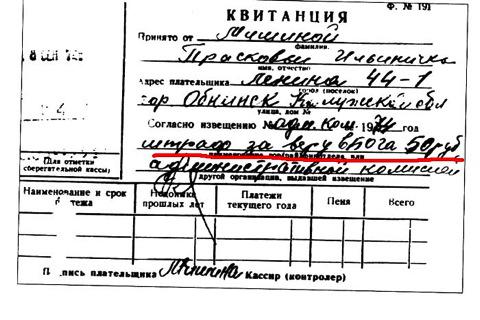 Ф. № 191
КВИТАНЦИЯ
Принято от Мишиной
фамилия.
Прасковьи Ильиничны
имя, отчество
Адрес плательщика Ленина 44-1
город (поселок)
гор Обнинск Калужской обл
улица, дом №
Согласно извещению № адм. ком. 19 год
штраф за веру в Бога 50 руб
административной комиссией
другой организации, выдавшей извещение
Для отметки
(сберегательной кассы)
Наименование и срок
тежа
Недоимка
прошлых лет
Платежи
текущего года
Пеня
Всего
пись плательщика Мишина Кассир (контролер)